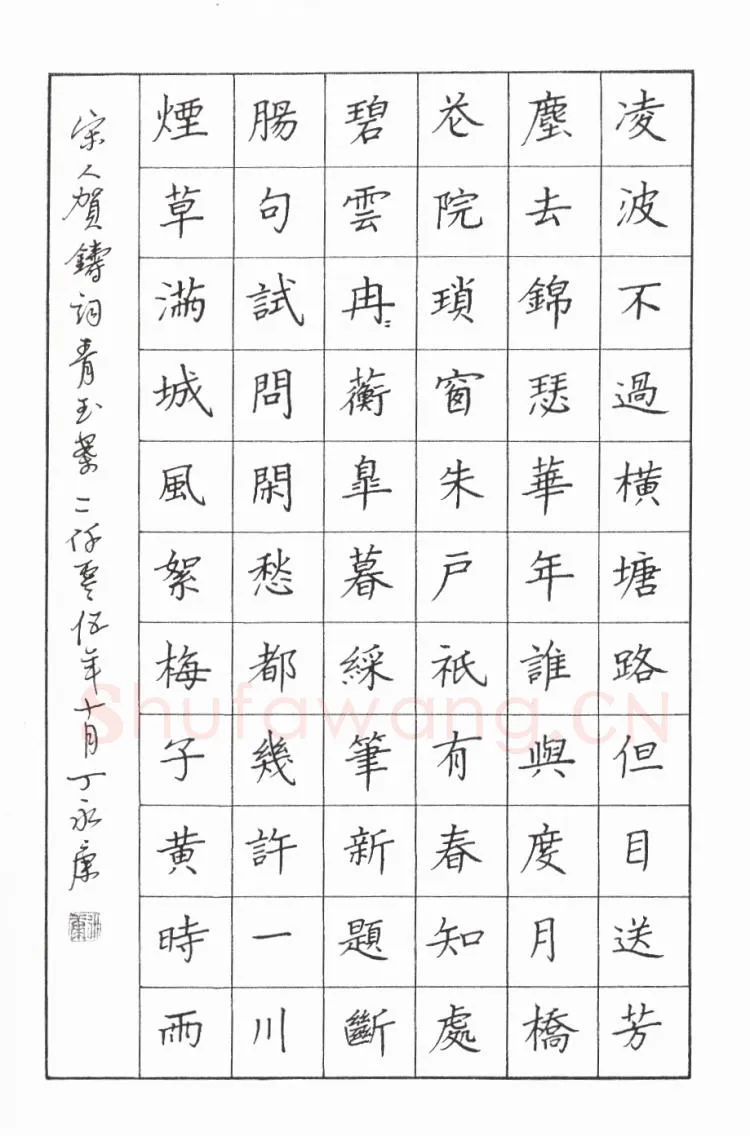 凌波不過橫塘路但目送芳
塵去錦瑟華年誰與度月橋
花院瑣窗朱戶祇有春知處
碧雲冉〻蘅皋暮綵筆新題斷
腸句試問閑愁都幾許一川
煙草滿城風絮梅子黃時雨
宋人賀鑄詞青玉案二仟零伍年十月丁永康
Shufawang.CN